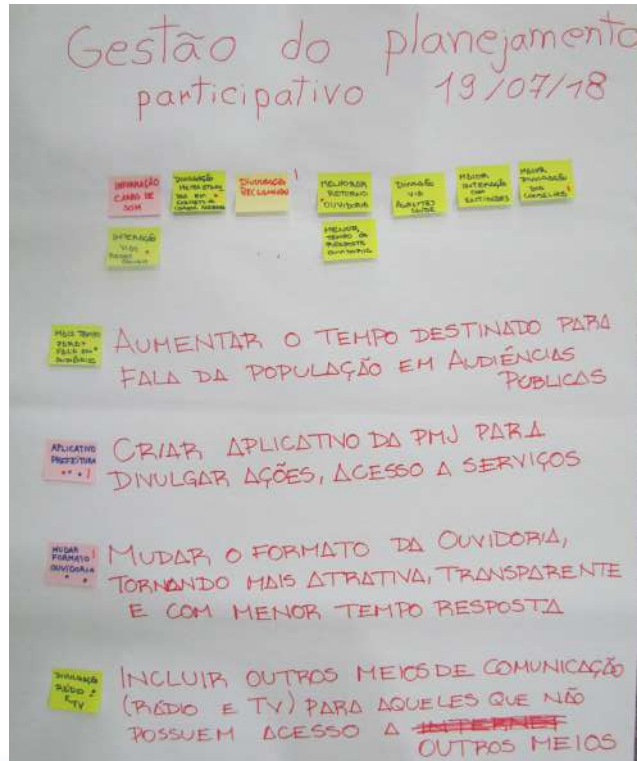 Gestão do planejamento
participativo 19/07/18
CARRO DE
SOM
DIVULGAÇÃO
DIVULGAÇÃO
RECLAMAÇÃO
MELHORAR
RETORNO
OUVIDORIA
DIVULGAÇÃO
VIA
AGENTES
SAÚDE
MAIOR
INTERAÇÃO
COM
ENTIDADES
MAIOR
DIVULGAÇÃO
DOS
CONSELHOS
INTERAÇÃO
VIAS
REDES
SOCIAIS
MENOR
TEMPO DE
RESPOSTA
OUVIDORIA
MAIS TEMPO
PARA
FALA EM
AUDIÊNCIAS
AUMENTAR O TEMPO DESTINADO PARA
FALA DA POPULAÇÃO EM AUDIÊNCIAS
PÚBLICAS
APLICATIVO
PREFEITURA
CRIAR APLICATIVO DA PMJ PARA
DIVULGAR AÇÕES, ACESSO A SERVIÇOS
MUDAR
FORMATO
OUVIDORIA
MUDAR O FORMATO DA OUVIDORIA,
TORNANDO MAIS ATRATIVA, TRANSPARENTE
E COM MENOR TEMPO RESPOSTA
DIVULGAÇÃO
RÁDIO
E TV
INCLUIR OUTROS MEIOS DE COMUNICAÇÃO
(RÁDIO E TV) PARA AQUELES QUE NÃO
POSSUEM ACESSO A INTERNET
OUTROS MEIOS